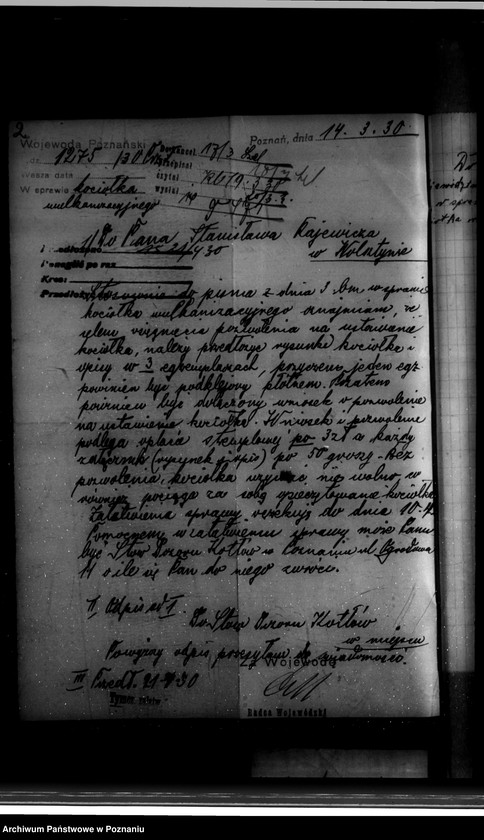 2.
Wojewoda Poznański
Poznań, dnia 14. 3. 30
1275 /30
17/3
Wasza data
czytał
W sprawie kociołka
wysłał
wulkanizacyjnego
1/ Do Pana Stanisława Rajewicza
w Wolsztynie
Stosownie do pisma z dnia 3 bm w sprawie
kociołka wulkanizacyjnego oznajmiam, że
celem uzyskania pozwolenia na ustawienie
kociołka, należy przedłożyć rysunki kociołka i
opisy w 3 egzemplarzach, przyczem jeden egz
powinien być podklejony płótnem. Pozatem
powinien być dołączony wniosek o pozwolenie
na ustawienie kociołka. Wniosek i pozwolenie
podlega opłacie stemplowej po 3 zł a każdy
załącznik (rysunek i opis) po 50 groszy. Bez
pozwolenia, kociołka używać nie wolno
pociąga za sobą kociołka
Załatwienia sprawy oczekuję do dnia 10.4
Pomocnym w załatwieniu sprawy może Panu
być Stow Dozoru Kotłów w Poznaniu ul Ogrodowa
11 o ile się Pan do niego zwróci.
II Odpis ad I.
Do Stow Dozoru Kotłów
w miejscu
Powyższy odpis przesyłam do wiadomości.
Za Wojewodę
III Przedł. 21-4-30
Radca Wojewódzki
Archiwum Państwowe w Poznaniu